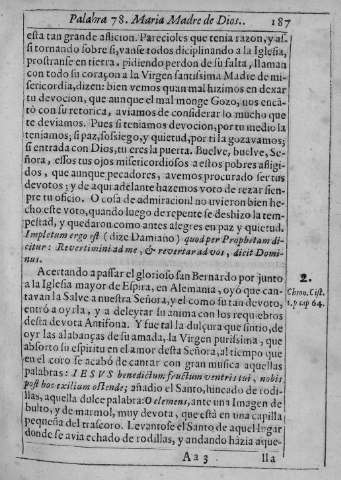 Palabra 78. Maria Madre de Dios. 187
esta tan grande afliccion. Pareciòles que tenia razon, y as-
si tornando sobre si, vanse todos diciplinando a la Iglesia,
prostranse en tierra, pidiendo perdon de su falta, llaman
con todo su coraçon a la Virgen santissima Madre de mi-
sericordia, dizen: bien vemos quan mal hizimos en dexar
tu devocion, que aunque el mal monge Gozo, nos encã-
tò con su retorica, aviamos de considerar lo mucho que
te deviamos. Pues si teniamos devocion, por tu medio la
teniamos; si paz, sossiego, y quietud, por ti la gozavamos;
si entrada con Dios, tu eres la puerta. Buelve, buelve, Se-
ñora, essos tus ojos misericordiosos a estos pobres afligi-
dos, que aunque pecadores, avemos procurado ser tus
devotos; y de aqui adelante hazemos voto de rezar siem-
pre tu oficio. O cosa de admiracion! no uvieron bien he-
cho este voto, quando luego de repente se deshizo la tem-
pestad, y quedaron como antes alegres en paz y quietud.
Impletum ergo est (dize Damiano) quod per Prophetam di-
citur: Revertimini ad me, & revertar ad vos, dicit Domi-
nus.
Acertando a passar el glorioso san Bernardo por junto
a la Iglesia mayor de Espira, en Alemania, oyò que can-
tavan la Salve a nuestra Señora, y el como su tan devoto,
entrò a oyrla, y a deleytar su anima con los requiebros
desta devota Antifona. Y fue tal la dulçura que sintio, de
oyr las alabanças de su amada, la Virgen purissima, que
absorto su espiritu en el amor desta Señora, al tiempo que
en el coro se acabò de cantar con gran musica aquellas
palabras: IESVS benedictum fructum ventris tui, nobis
post hoc exilium ostende; añadio el Santo, hincado de rodi-
llas, aquella dulce palabra: O clemens, ante una Imagen de
bulto, y de marmol, muy devota, que està en una capilla
pequeña del trascoro. Levantose el Santo de aquel lugar
donde se avia echado de rodillas, y andando hàzia aque-
Aa 3 lla
2.
Chron. Cist.
1. p cap 64.